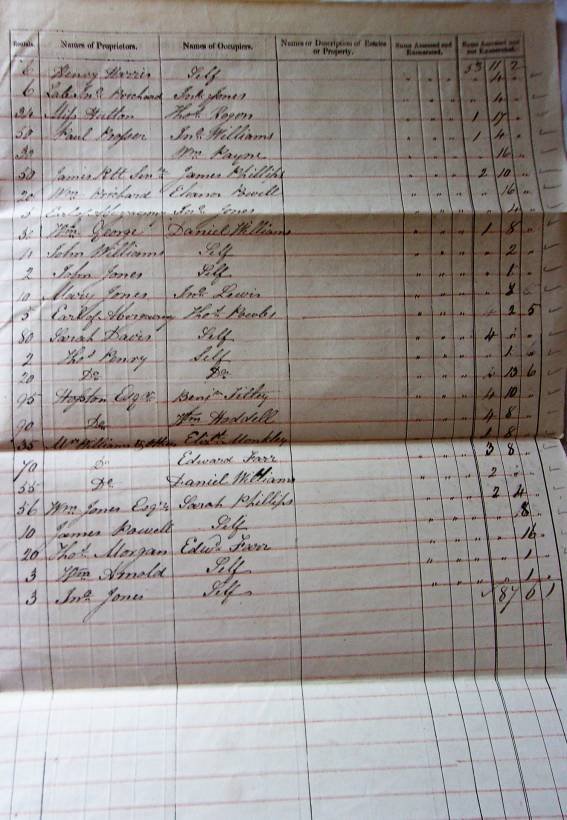 Rentals. Names of Proprietors. Names of Occupiers. Names or Description of Estates or Property. Sums Assessed and Exonerated. Sums Assessed and not Exonerated.
53 11 2
6 Henry Morris Self " " " " 4 "
6 Late Jno. Prichard Jno. Jones " " " " 4 "
Miss Hutton Thos. " " " 1 17 "
50 Paul Prosser Jno. Williams " " " 1 4 "
Wm. Payne " " " " 16 "
50 James Senr. James Phillips " " " 2 10 "
20 Wm. Prichard Eleanor Powell " " " " 16 "
5 Jno. Jones " " " " 4 "
Wm. George Daniel Williams " " " 1 8 "
John Williams Self " " " " 2 "
2 John Jones Self " " " " 1 "
10 Mary Jones Jno. Lewis " " " " 8 "
5 Earl of Thos. " " " 2 5
80 Sarah Davies Self " " " 4 " "
2 Thos. Penry Self " " " " 1 "
20 Do. Do. " " " " 13 6
95 Hopton Esqr. Benjn. " " " 4 10 "
90 Do. Wm. Waddell " " " 4 8 "
35 Elizth. " " " 1 8 "
70 Do. Edward Farr " " " 3 8 "
55 Do. Daniel Williams " " " 2 " "
56 Wm. Jones Esqr. Sarah Phillips " " " 2 4 "
10 James Powell Self " " " " 8 "
20 Thos. Morgan Edwd. Farr " " " " 16 "
3 Wm. Arnold Self " " " " 1 "
3 Jno. Jones Self " " " " 1 "
87 6 1